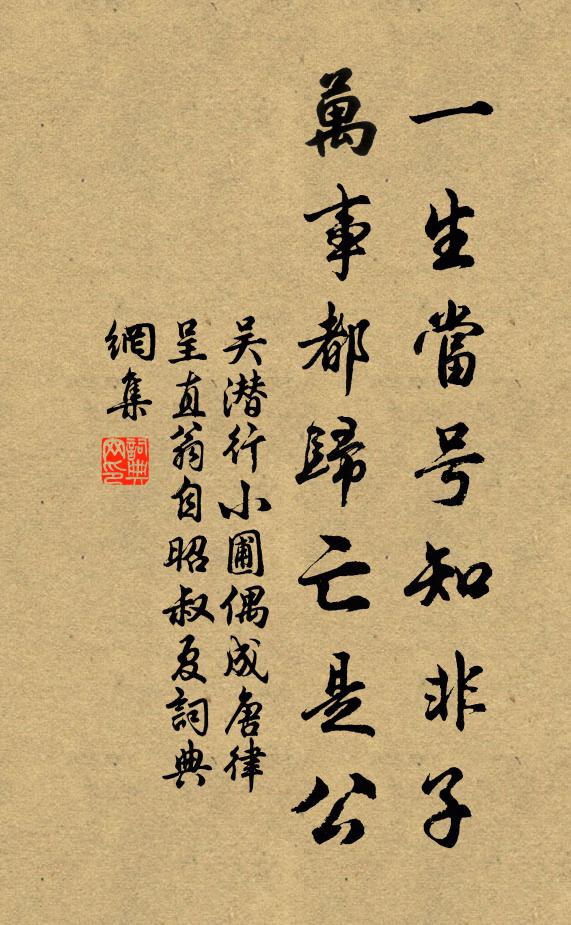 一生當号知非子
萬事都歸亡是公
吴潜行小圃偶成唐律
呈直翁自昭叔夏詞典
網集
詞典
网印